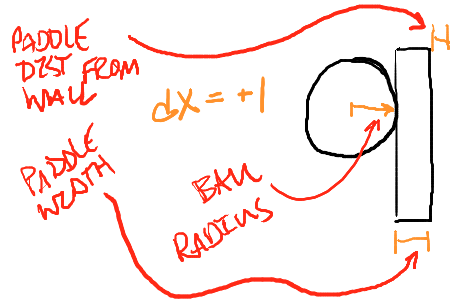 PADDLE
DIST FROM
WALL
dx = +1
PADDLE
WIDTH
BALL
RADIUS